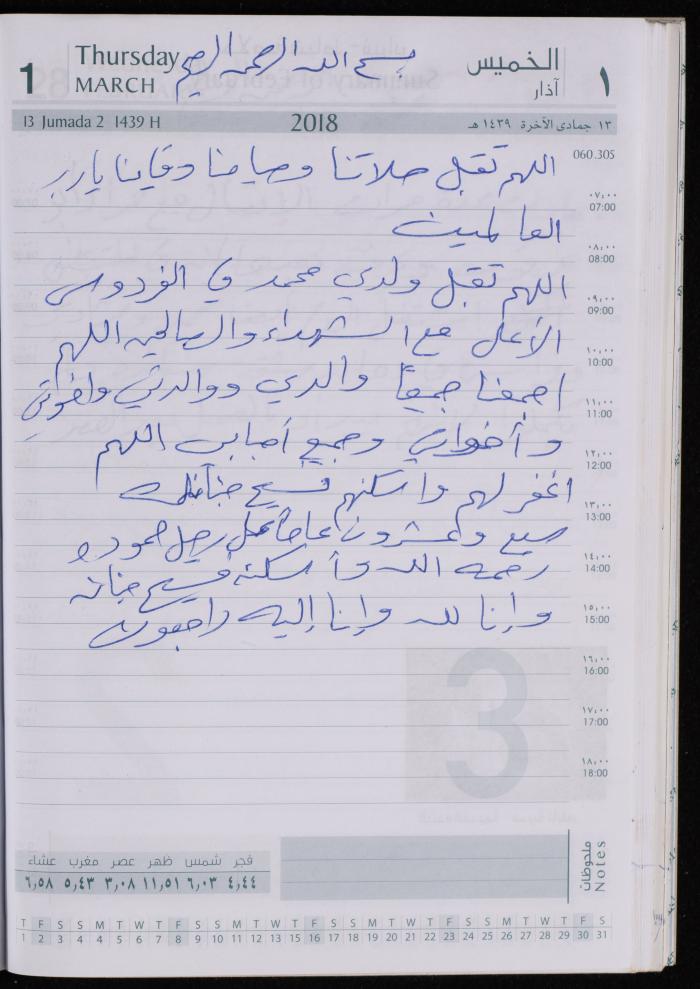 1 Thursday MARCH
بسم الله الرحمن الرحيم
الخميس ١ آذار
13 Jumada 2 1439 H
2018
١٣ جمادى الآخرة ١٤٣٩ هـ
060.305
اللهم تقبل صلاتنا وصيامنا وقيامنا يا رب
العالمين
اللهم تقبل ولدي محمد في الفردوس
الأعلى مع الشهداء والصالحين اللهم
اجمعنا جميعاً والدي ووالدتي واخواتي
وأخواتي وجميع أحبابي اللهم
اغفر لهم واسكنهم فسيح جناتك
سبع وعشرون عاماً على رحيل حموده
رحمه الله وأسكنه فسيح جناته
وإنا لله وإنا إليه راجعون
٠٧:٠٠ 07:00
٠٨:٠٠ 08:00
٠٩:٠٠ 09:00
١٠:٠٠ 10:00
١١:٠٠ 11:00
١٢:٠٠ 12:00
١٣:٠٠ 13:00
١٤:٠٠ 14:00
١٥:٠٠ 15:00
١٦:٠٠ 16:00
١٧:٠٠ 17:00
١٨:٠٠ 18:00
3
ملحوظات Notes
فجر شمس ظهر عصر مغرب عشاء
٤,٤٤ ٦,٠٣ ١١,٥١ ٣,٠٨ ٥,٤٣ ٦,٥٨
T F S S M T W T F S S M T W T F S S M T W T F S S M T W T F S
1 2 3 4 5 6 7 8 9 10 11 12 13 14 15 16 17 18 19 20 21 22 23 24 25 26 27 28 29 30 31